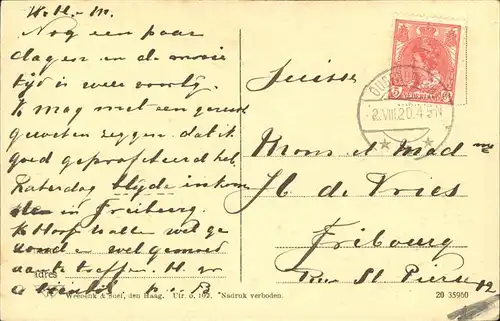 W. H. - M.
Nog een paar
dagen en de mooie
tijd is weer voorbij.
Ik mag met een gerust
geweten zeggen dat ik
goed geprofiteerd heb.
Zaterdag blijde inkom
in Freiburg.
Ik hoop allen wel ge
zond en wel gemoed
aan te treffen. H. gr
Suisse
Mons et Madme
H de Vries
Fribourg
Rue St Pierre 12
NEDERLAND
2.VIII.20.4-5N
adres
Weenenk & Snel, den Haag. Uitr. o. 102, Nadruk verboden.
20 35960